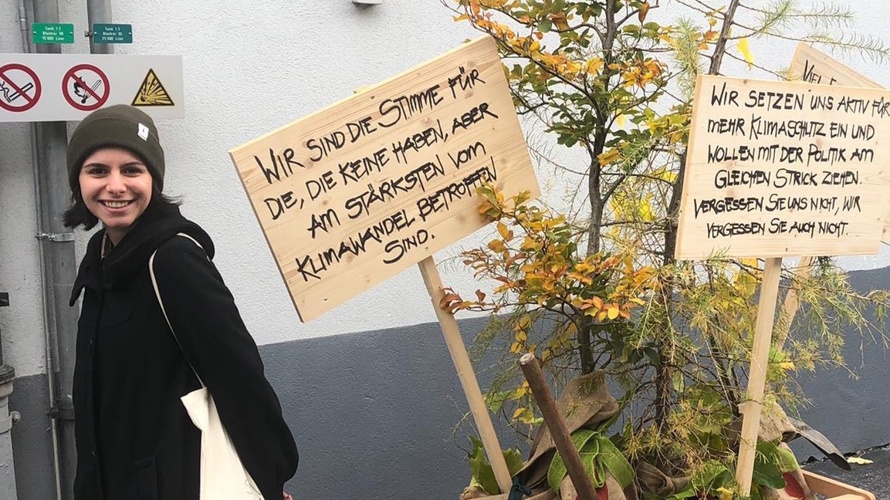 Tank 1.2
WIR SIND DIE STIMME FÜR
DIE, DIE KEINE HABEN, ABER
AM STÄRKSTEN VOM
KLIMAWANDEL BETROFFEN
SIND.
WIR SETZEN UNS AKTIV FÜR
MEHR KLIMASCHUTZ EIN UND
WOLLEN MIT DER POLITIK AM
GLEICHEN STRICK ZIEHEN.
VERGESSEN SIE UNS NICHT, WIR
VERGESSEN SIE AUCH NICHT.